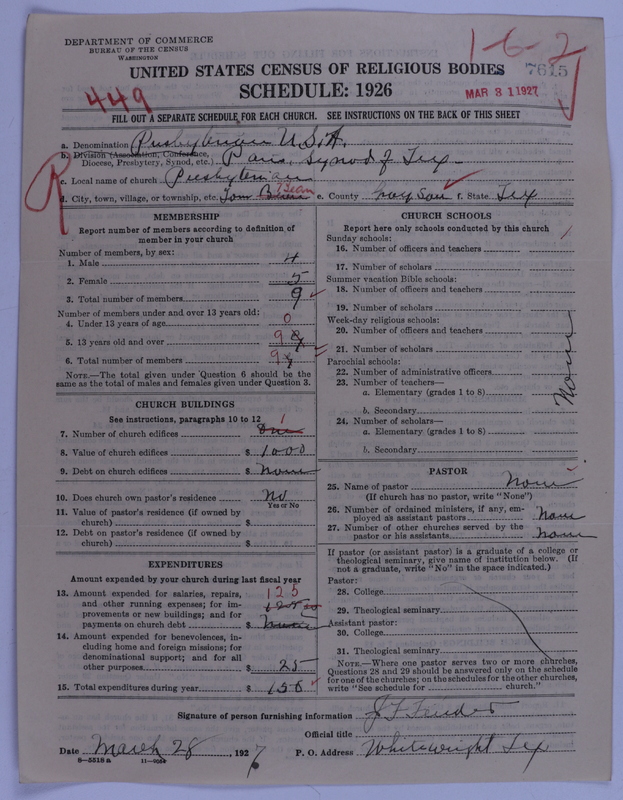 DEPARTMENT OF COMMERCE
BUREAU OF THE CENSUS
WASHINGTON
1-6-2
7615
UNITED STATES CENSUS OF RELIGIOUS BODIES
449
SCHEDULE: 1926
MAR 31 1927
FILL OUT A SEPARATE SCHEDULE FOR EACH CHURCH. SEE INSTRUCTIONS ON THE BACK OF THIS SHEET
a. Denomination Presbyterian U.S.A.
b. Division (Association, Conference,
Diocese, Presbytery, Synod, etc.) Paris, Synod of Tex
c. Local name of church Presbyterian
R
d. City, town, village, or township, etc. Tom Bean e. County Grayson f. State Tex
MEMBERSHIP
Report number of members according to definition of
member in your church
Number of members, by sex:
1. Male 4
2. Female 5
3. Total number of members 9
Number of members under and over 13 years old:
4. Under 13 years of age 0
5. 13 years old and over 9
6. Total number of members 9
NOTE.—The total given under Question 6 should be the
same as the total of males and females given under Question 3.
CHURCH BUILDINGS
See instructions, paragraphs 10 to 12
7. Number of church edifices One 1
8. Value of church edifices $ 1000
9. Debt on church edifices $ None
10. Does church own pastor's residence No
Yes or No
11. Value of pastor's residence (if owned by
church) $
12. Debt on pastor's residence (if owned by
church) $
EXPENDITURES
Amount expended by your church during last fiscal year
13. Amount expended for salaries, repairs, 125
and other running expenses; for im-
provements or new buildings; and for
payments on church debt $
14. Amount expended for benevolences, in-
cluding home and foreign missions; for
denominational support; and for all
other purposes $ 25
15. Total expenditures during year $ 150
CHURCH SCHOOLS
Report here only schools conducted by this church
Sunday schools:
16. Number of officers and teachers
17. Number of scholars
Summer vacation Bible schools:
18. Number of officers and teachers
19. Number of scholars
Week-day religious schools:
20. Number of officers and teachers
21. Number of scholars
Parochial schools:
22. Number of administrative officers
23. Number of teachers—
a. Elementary (grades 1 to 8)
b. Secondary
24. Number of scholars—
a. Elementary (grades 1 to 8)
b. Secondary
None
PASTOR
25. Name of pastor None
(If church has no pastor, write "None")
26. Number of ordained ministers, if any, em-
ployed as assistant pastors None
27. Number of other churches served by the
pastor or his assistants None
If pastor (or assistant pastor) is a graduate of a college or
theological seminary, give name of institution below. (If
not a graduate, write "No" in the space indicated.)
Pastor:
28. College
29. Theological seminary
Assistant pastor:
30. College
31. Theological seminary
NOTE.—Where one pastor serves two or more churches,
Questions 28 and 29 should be answered only on the schedule
for one of the churches; on the schedules for the other churches,
write "See schedule for church."
Signature of person furnishing information
Official title
Date March 28 1927
P. O. Address Whitewright Tex
8—5518 a 11—9054